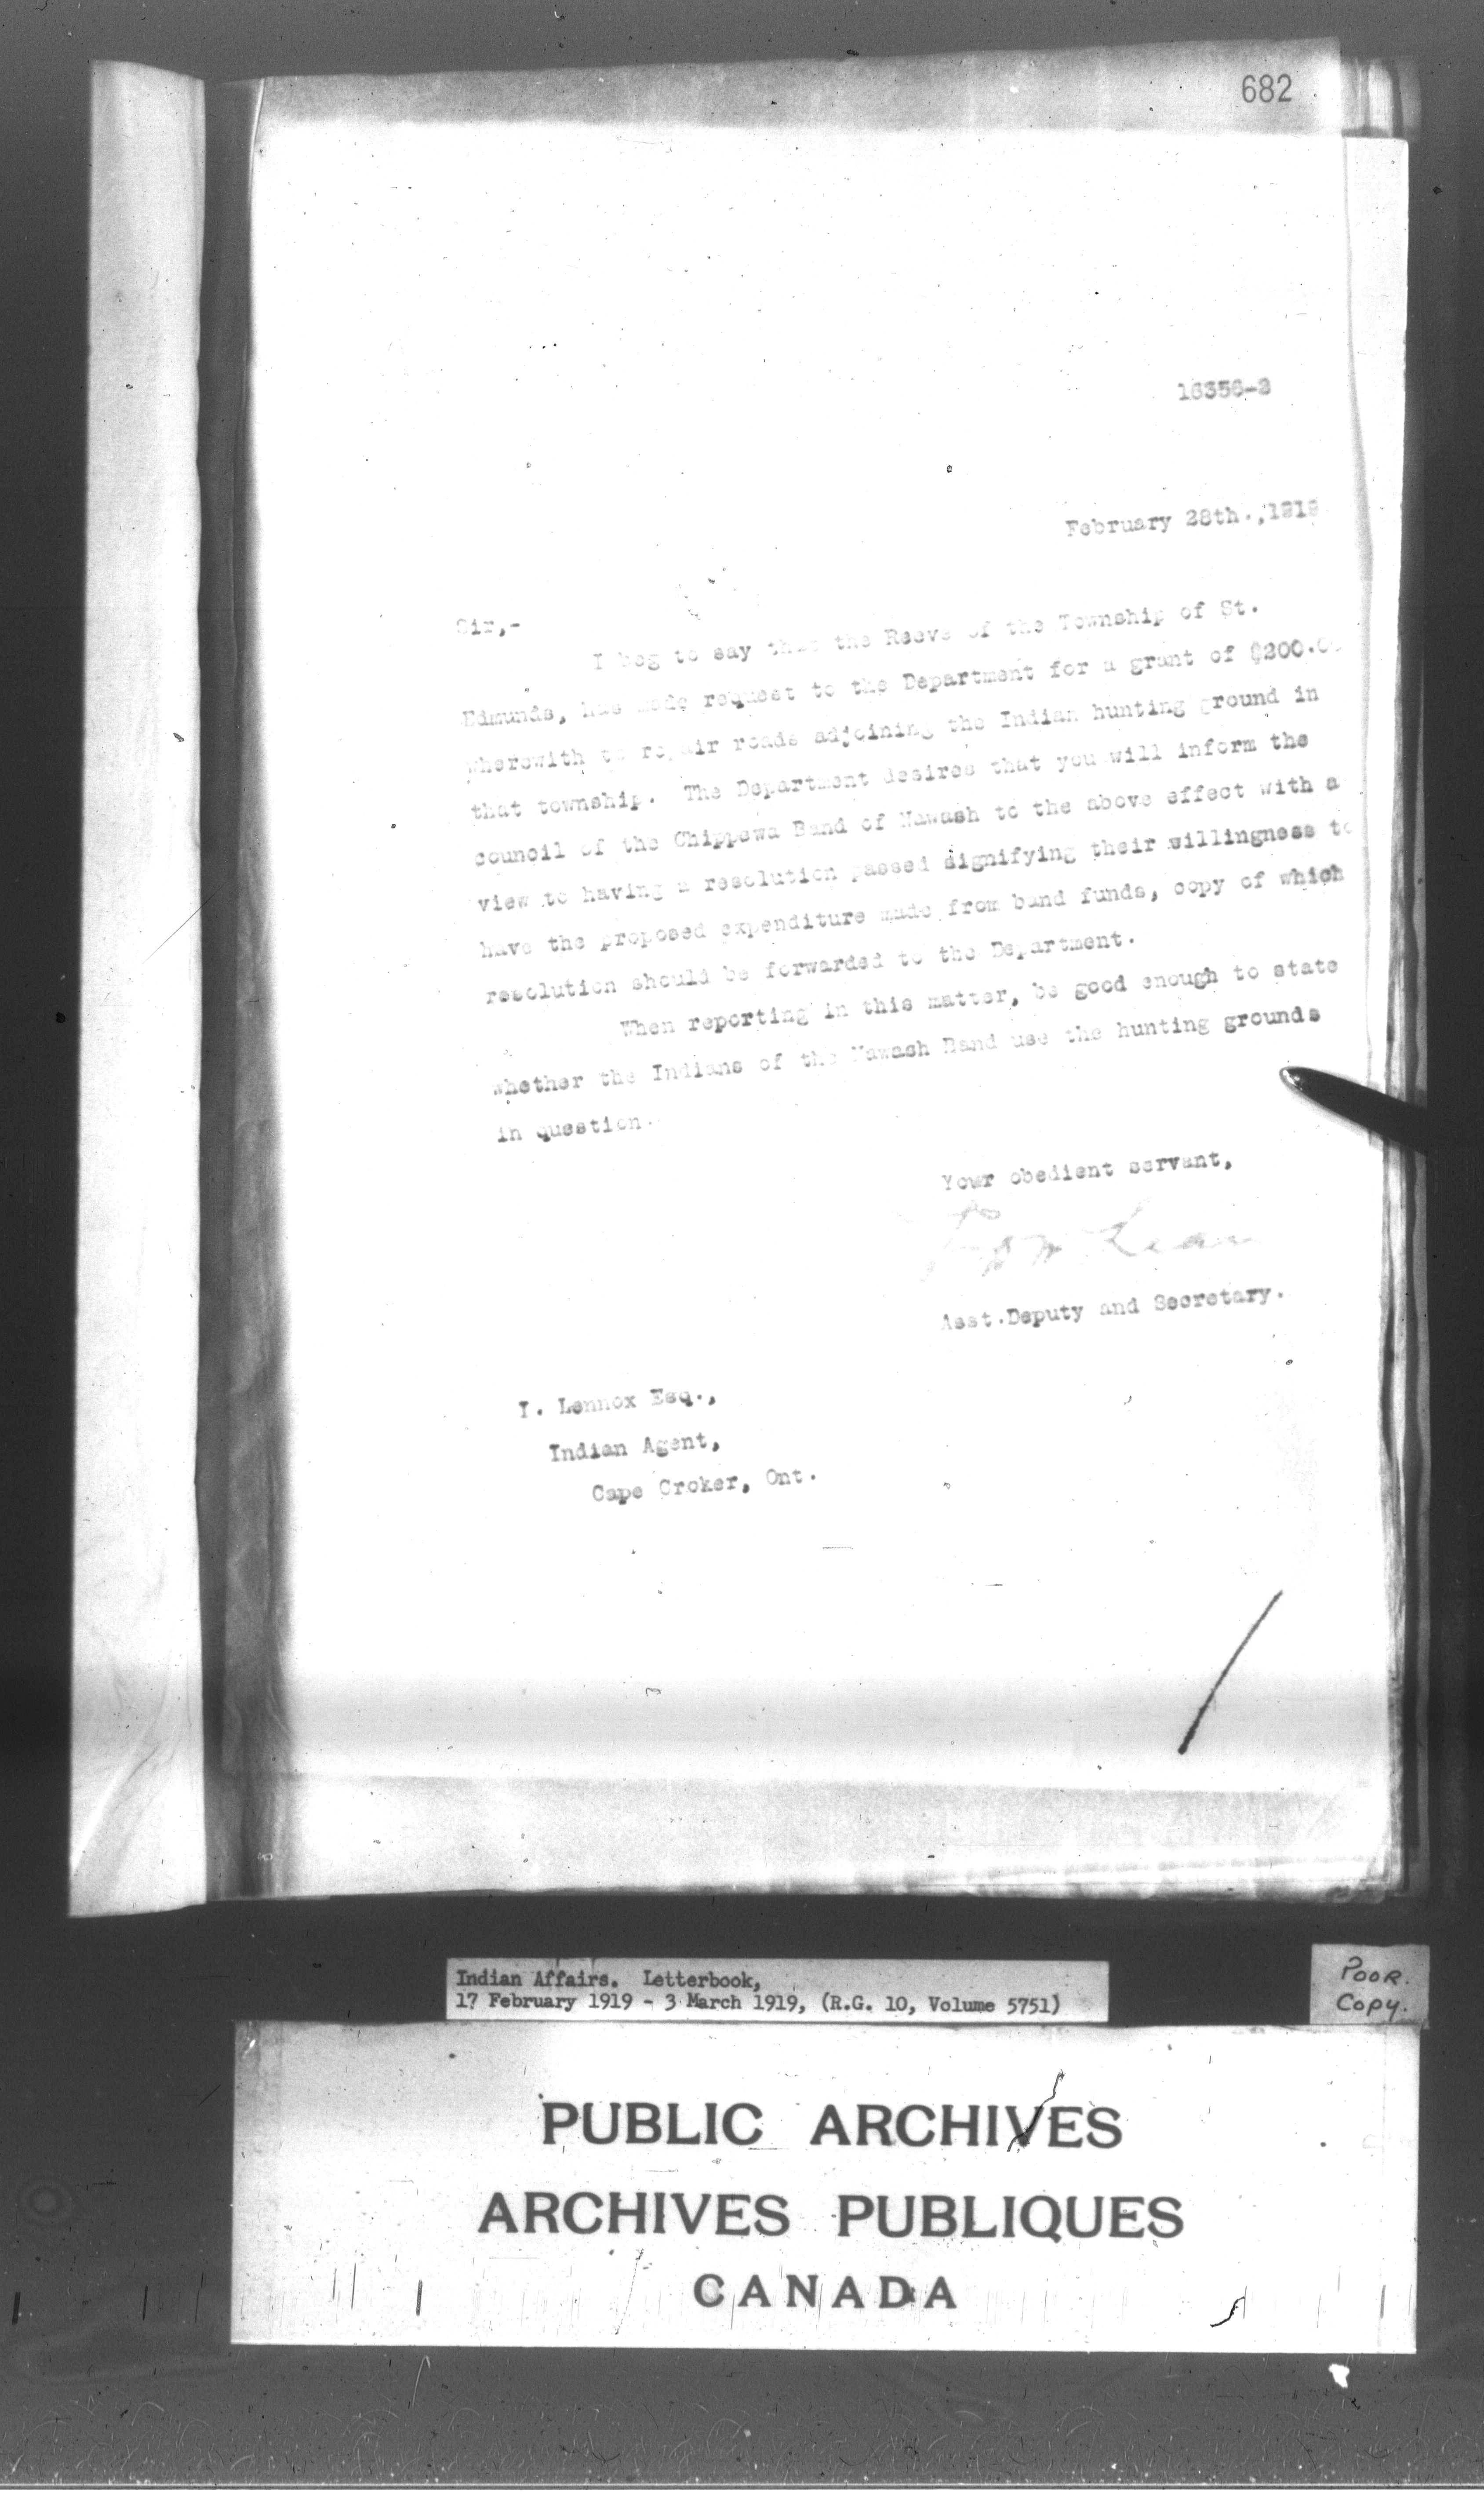 682
16356-2
February 28th.,1919
Sir,-
I beg to say that the Reeve of the Township of St.
Edmunds, has made request to the Department for a grant of $200.00
wherewith to repair roads adjoining the Indian hunting ground in
that township. The Department desires that you will inform the
council of the Chippewa Band of Nawash to the above effect with a
view to having a resolution passed signifying their willingness to
have the proposed expenditure made from band funds, copy of which
resolution should be forwarded to the Department.
When reporting in this matter, be good enough to state
whether the Indians of the Nawash Band use the hunting grounds
in question.
Your obedient servant,
Lean
Asst.Deputy and Secretary.
I. Lennox Esq.,
Indian Agent,
Cape Croker, Ont.
Indian Affairs. Letterbook,
17 February 1919 - 3 March 1919, (R.G. 10, Volume 5751)
POOR.
COPY.
PUBLIC ARCHIVES
ARCHIVES PUBLIQUES
CANADA